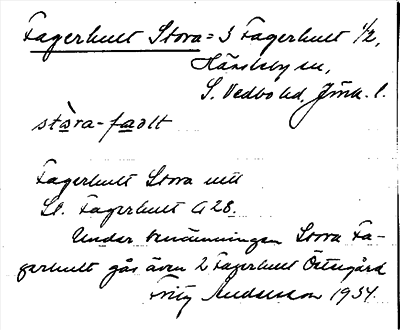 Fagerhult Stora = 3 Fagerhult 1/2,
Hässleby sn,
S. Vedbo hd, Jönk. l.
stòra-fadlt
Fagerhult Stora utt
St. Fagerhult G 28.
Under benämningen Stora Fa-
gerhult gås även 2 Fagerhult Östregård
Fritz Andersson 1934.